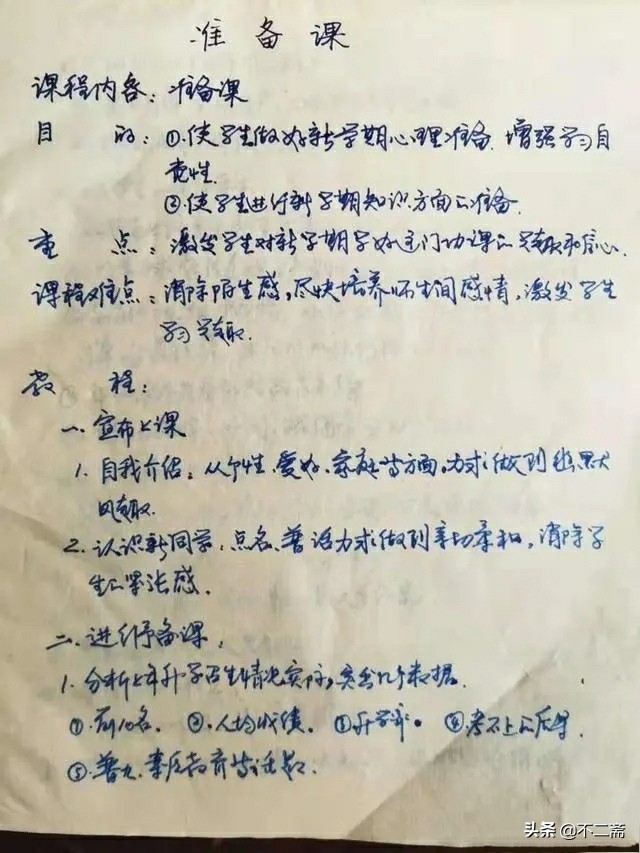 准备课
课程内容：准备课
目 的：①.使学生做好新学期心理准备.增强学习自
觉性.
②.使学生进行新学期知识方面的准备.
重 点：激发学生对新学期学好这门功课的兴趣和信心.
课程难点：消除陌生感,尽快培养师生间感情,激发学生
学习兴趣.
教 程：
一.宣布上课
1.自我介绍：从个性、爱好、家庭等方面,力求做到幽默
风趣.
2.认识新同学.点名.普话力求做到亲切柔和,消除学
生的紧张感.
二.进行予备课：
1.分析上年升学西生情况实际,突出几个数据.
①.前10名. ②.人均成绩. ③升学率. ④考不上的后果.
⑤.普九.素质教育等话题.
头条 @不二斋